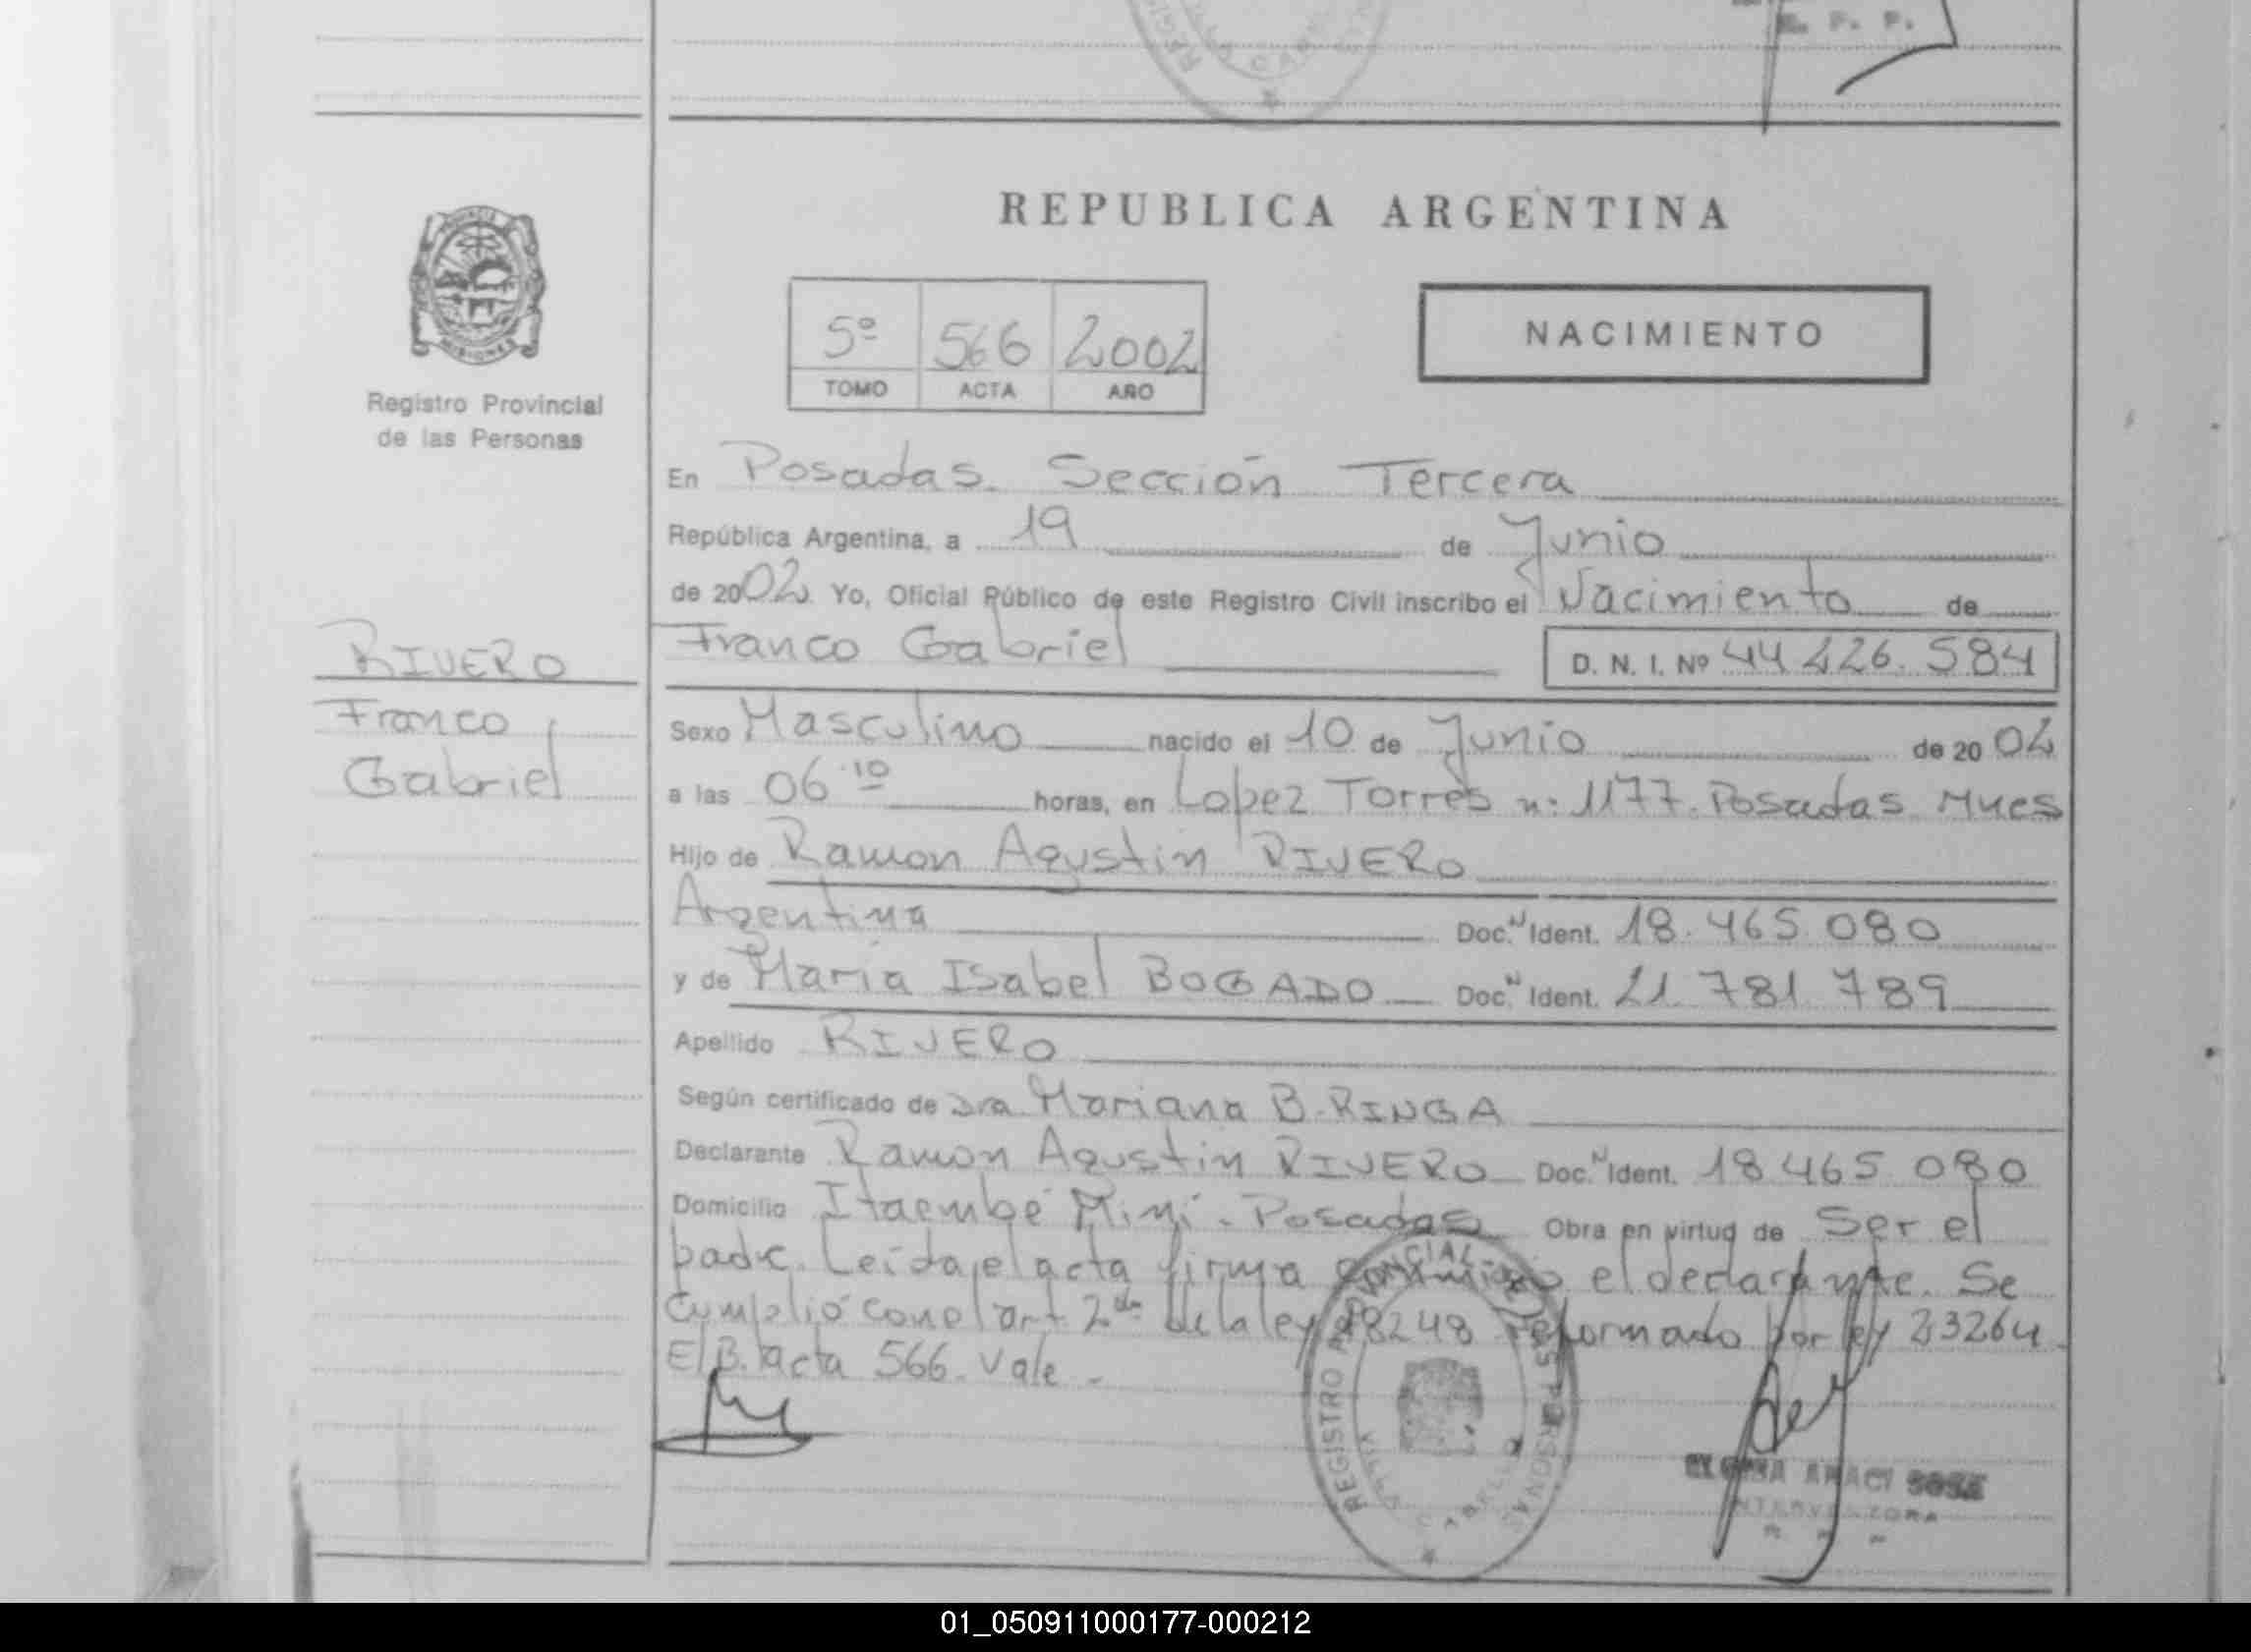 E. P. P.
REPUBLICA ARGENTINA
5º 566 2002
TOMO ACTA AÑO
NACIMIENTO
MISIONES
Registro Provincial
de las Personas
RIVERO
Franco
Gabriel
En Posadas. Sección Tercera
República Argentina, a 19 de Junio
de 2002. Yo, Oficial Público de este Registro Civil inscribo el Nacimiento de
Franco Gabriel D. N. I. Nº 44 226. 584
Sexo Masculino nacido el 10 de Junio de 20 02
a las 06 10 horas, en Lopez Torres nº 1177. Posadas. Mnes
Hijo de Ramon Agustin RIVERO
Argentina Doc. N Ident. 18. 465 080
y de Maria Isabel BOGADO Doc. N Ident. 21. 781 789
Apellido RIVERO
Según certificado de Dra Mariana B. RINGA
Declarante Ramon Agustin RIVERO Doc. N Ident. 18 465 080
Domicilio Itaembé Miní - Posadas Obra en virtud de Ser el
padre. Leída el acta firma conmigo el declarante. Se
cumplió con el art 2do de la ley 18248 reformado por ley 23264.
E/B. acta 566. Vale -
REGISTRO PROVINCIAL DE LAS PERSONAS
ARACI SOSA
INTERVENTORA
01_050911000177-000212